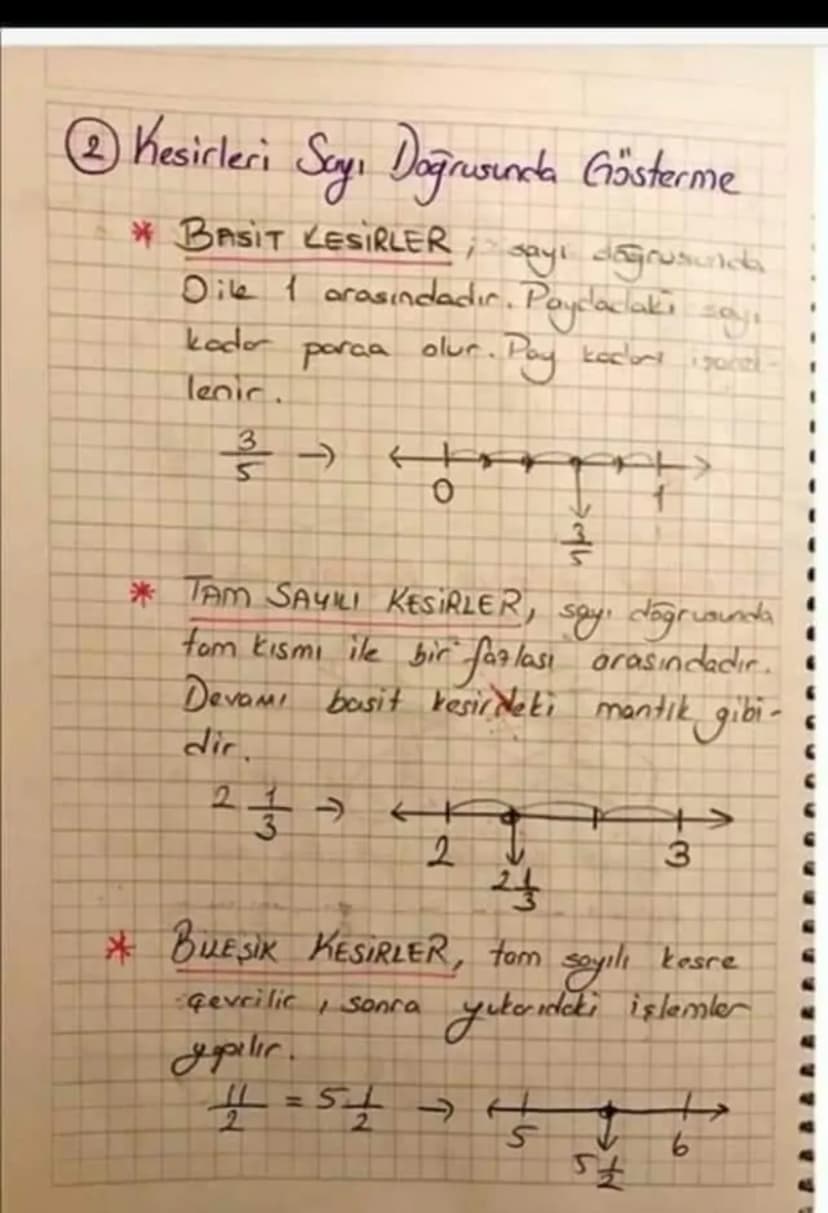 ② Kesirleri Sayı Doğrusunda Gösterme
* BASİT KESİRLER; sayı doğrusunda
0 ile 1 arasındadır. Paydadaki sayı
kadar parça olur. Pay kadarı işaret-
lenir.
3/5 →
0 1
3/5
* TAM SAYILI KESİRLER, sayı doğrusunda
tam kısmı ile bir fazlası arasındadır.
Devamı basit kesirdeki mantık gibi-
dir.
2 1/3 →
2 3
2 1/3
* BİLEŞİK KESİRLER, tam sayılı kesre
çevrilir, sonra yukarıdaki işlemler
yapılır.
11/2 = 5 1/2 →
5 6
5 1/2